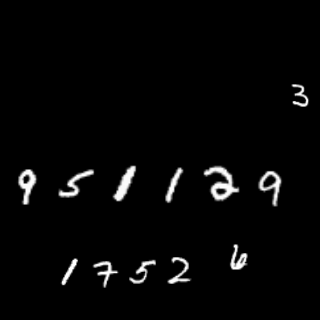 3
951129
17526